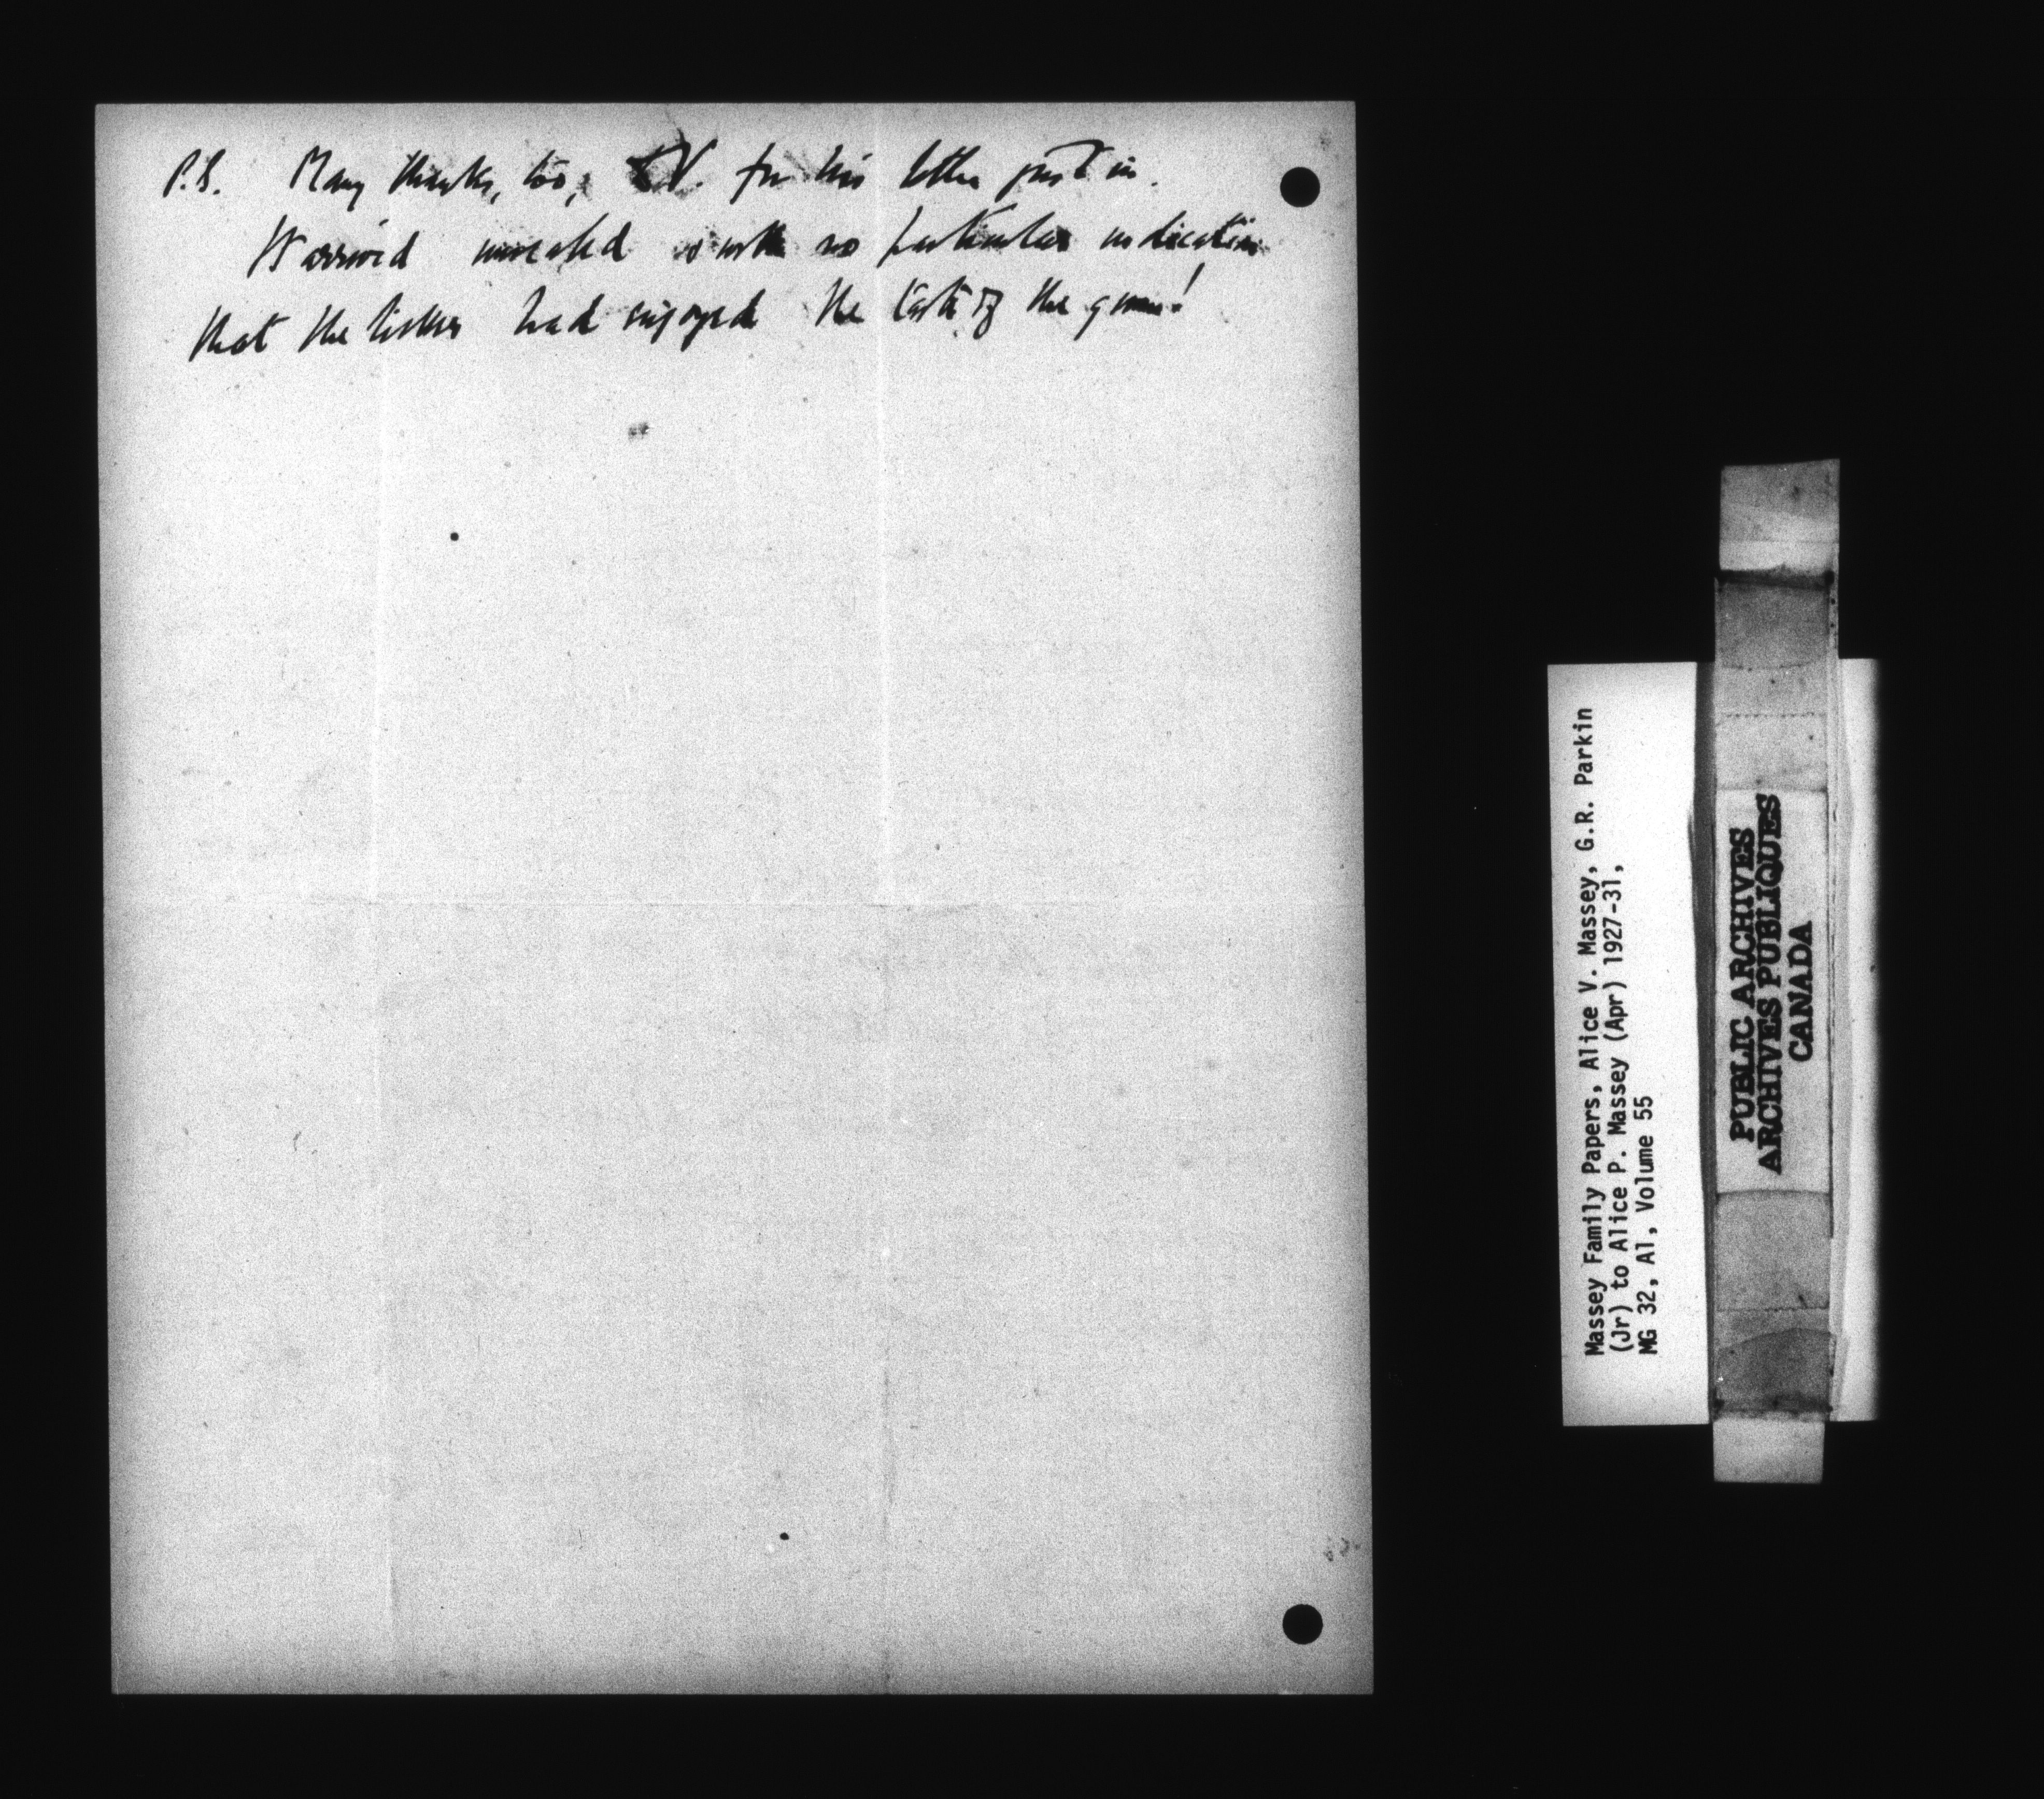 P.S. Many thanks, too, to V. for his letter just in.
It arrived unsealed & with no particular indication
that the licker had enjoyed the taste of the gum!
Massey Family Papers, Alice V. Massey, G.R. Parkin
(Jr) to Alice P. Massey (Apr) 1927-31,
MG 32, A1, Volume 55
PUBLIC ARCHIVES
ARCHIVES PUBLIQUES
CANADA